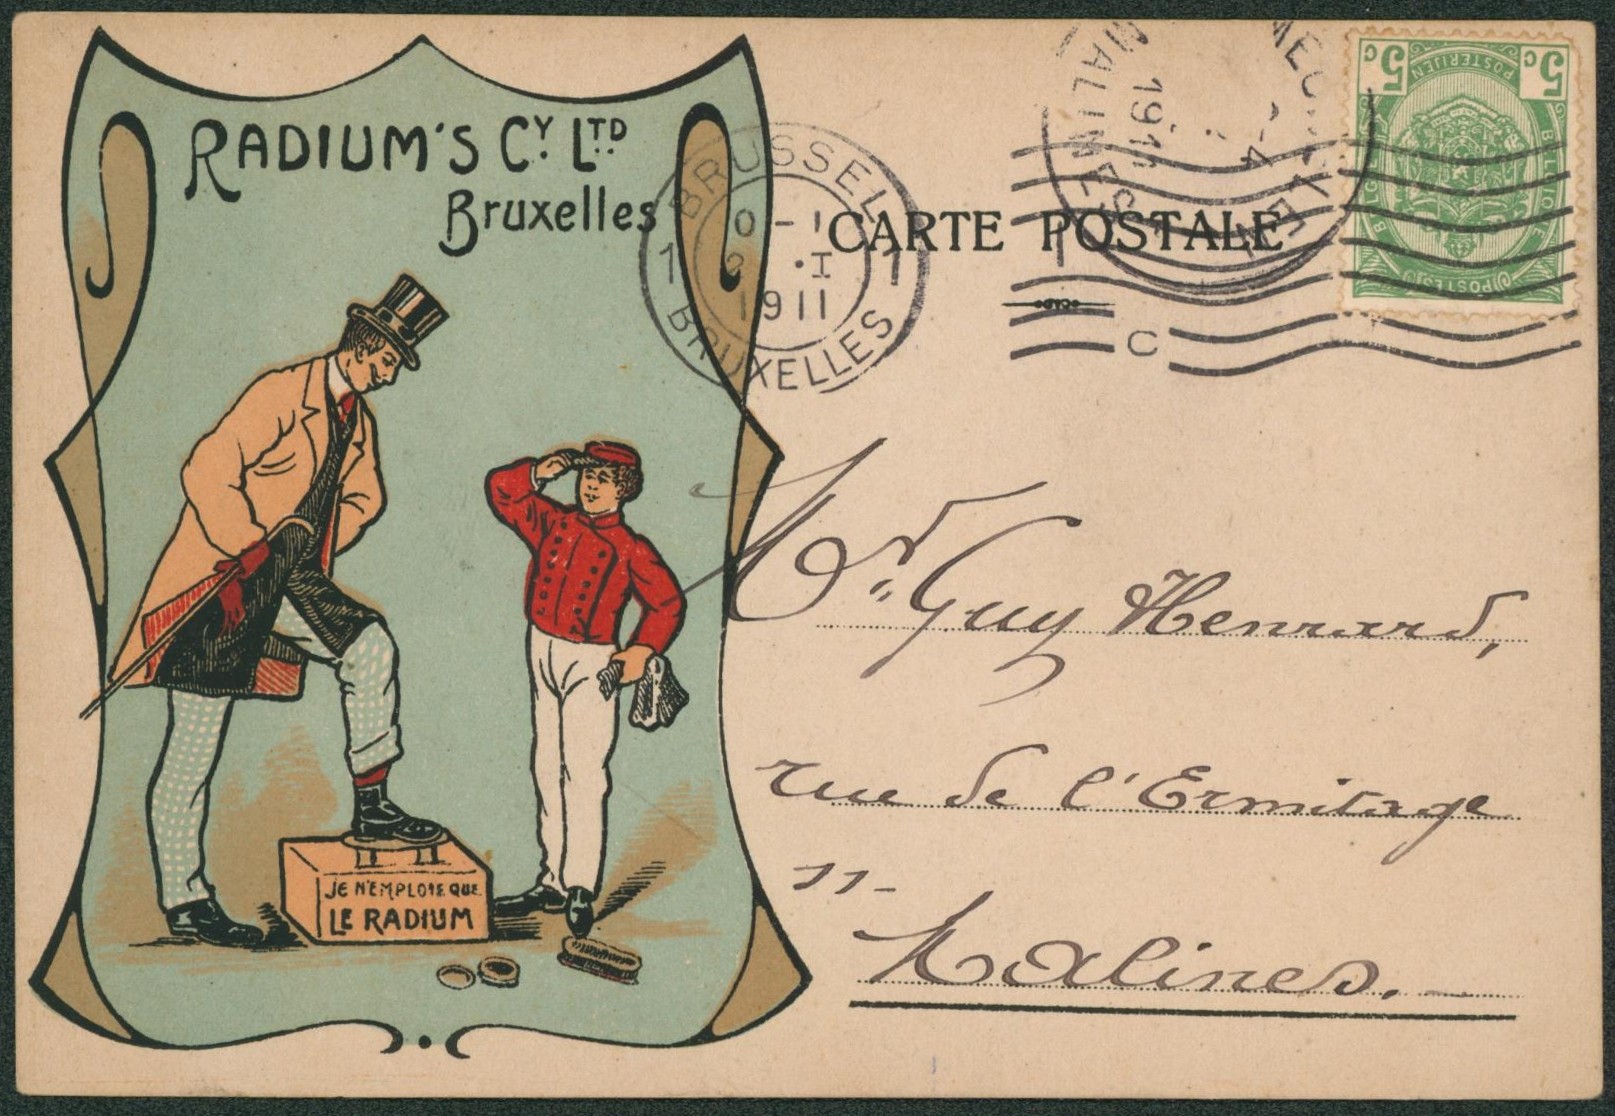 RADIUM'S CY. LTD
Bruxelles
JE N'EMPLOIE QUE
LE RADIUM
BRUSSEL
1 1
1911
BRUXELLES
CARTE POSTALE
MECHELEN
4
1911
MALINES
C
5c 5c
POSTERIJEN
BELGIQUE
BELGIE
POSTES
Mr. Guy Henrard,
rue de l'Ermitage
11-
Malines.